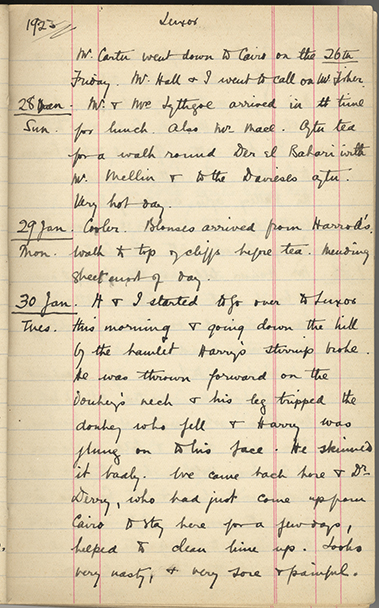 1923 Luxor
Mr. Carter went down to Cairo on the 26th
Friday. Mr. Hall & I went to call on Mr Fisher.
28 Jan. Mr. & Mrs Lythgoe arrived in tt time
Sun. for lunch. Also Mr. Mace. After tea
for a walk round Der el Bahari with
Mr. Mellin & to the Davieses after.
Very hot day.
29 Jan. Cooler. Blouses arrived from Harrod's.
Mon. walk to top of cliffs before tea. Mending
sheet most of day.
30 Jan. H & I started to go over to Luxor
Tues. this morning & going down the hill
by the hamlet Harry's stirrup broke.
He was thrown forward on the
donkey's neck & his leg tripped the
donkey who fell & Harry was
flung on to his face. He skinned
it badly. We came back here & Dr
Derry, who had just come up from
Cairo to stay here for a few days,
helped to clean him up. Looks
very nasty, & very sore & painful.